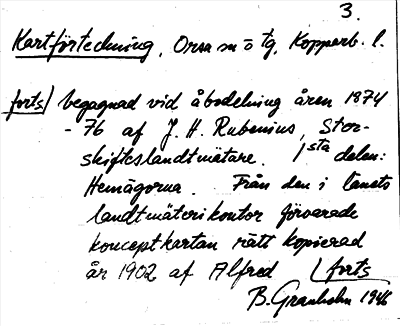 3.
Kartförteckning, Orsa sn o tg, Kopparb. l.
forts/ begagnad vid åbodelning åren 1874
-76 af J. H. Rubenius, Stor-
skifteslandtmätare. 1sta delen:
Hemägorna. Från den i länets
landtmäterikontor förvarade
konceptkartan rätt kopierad
år 1902 af Alfred forts
B. Granholm 1946